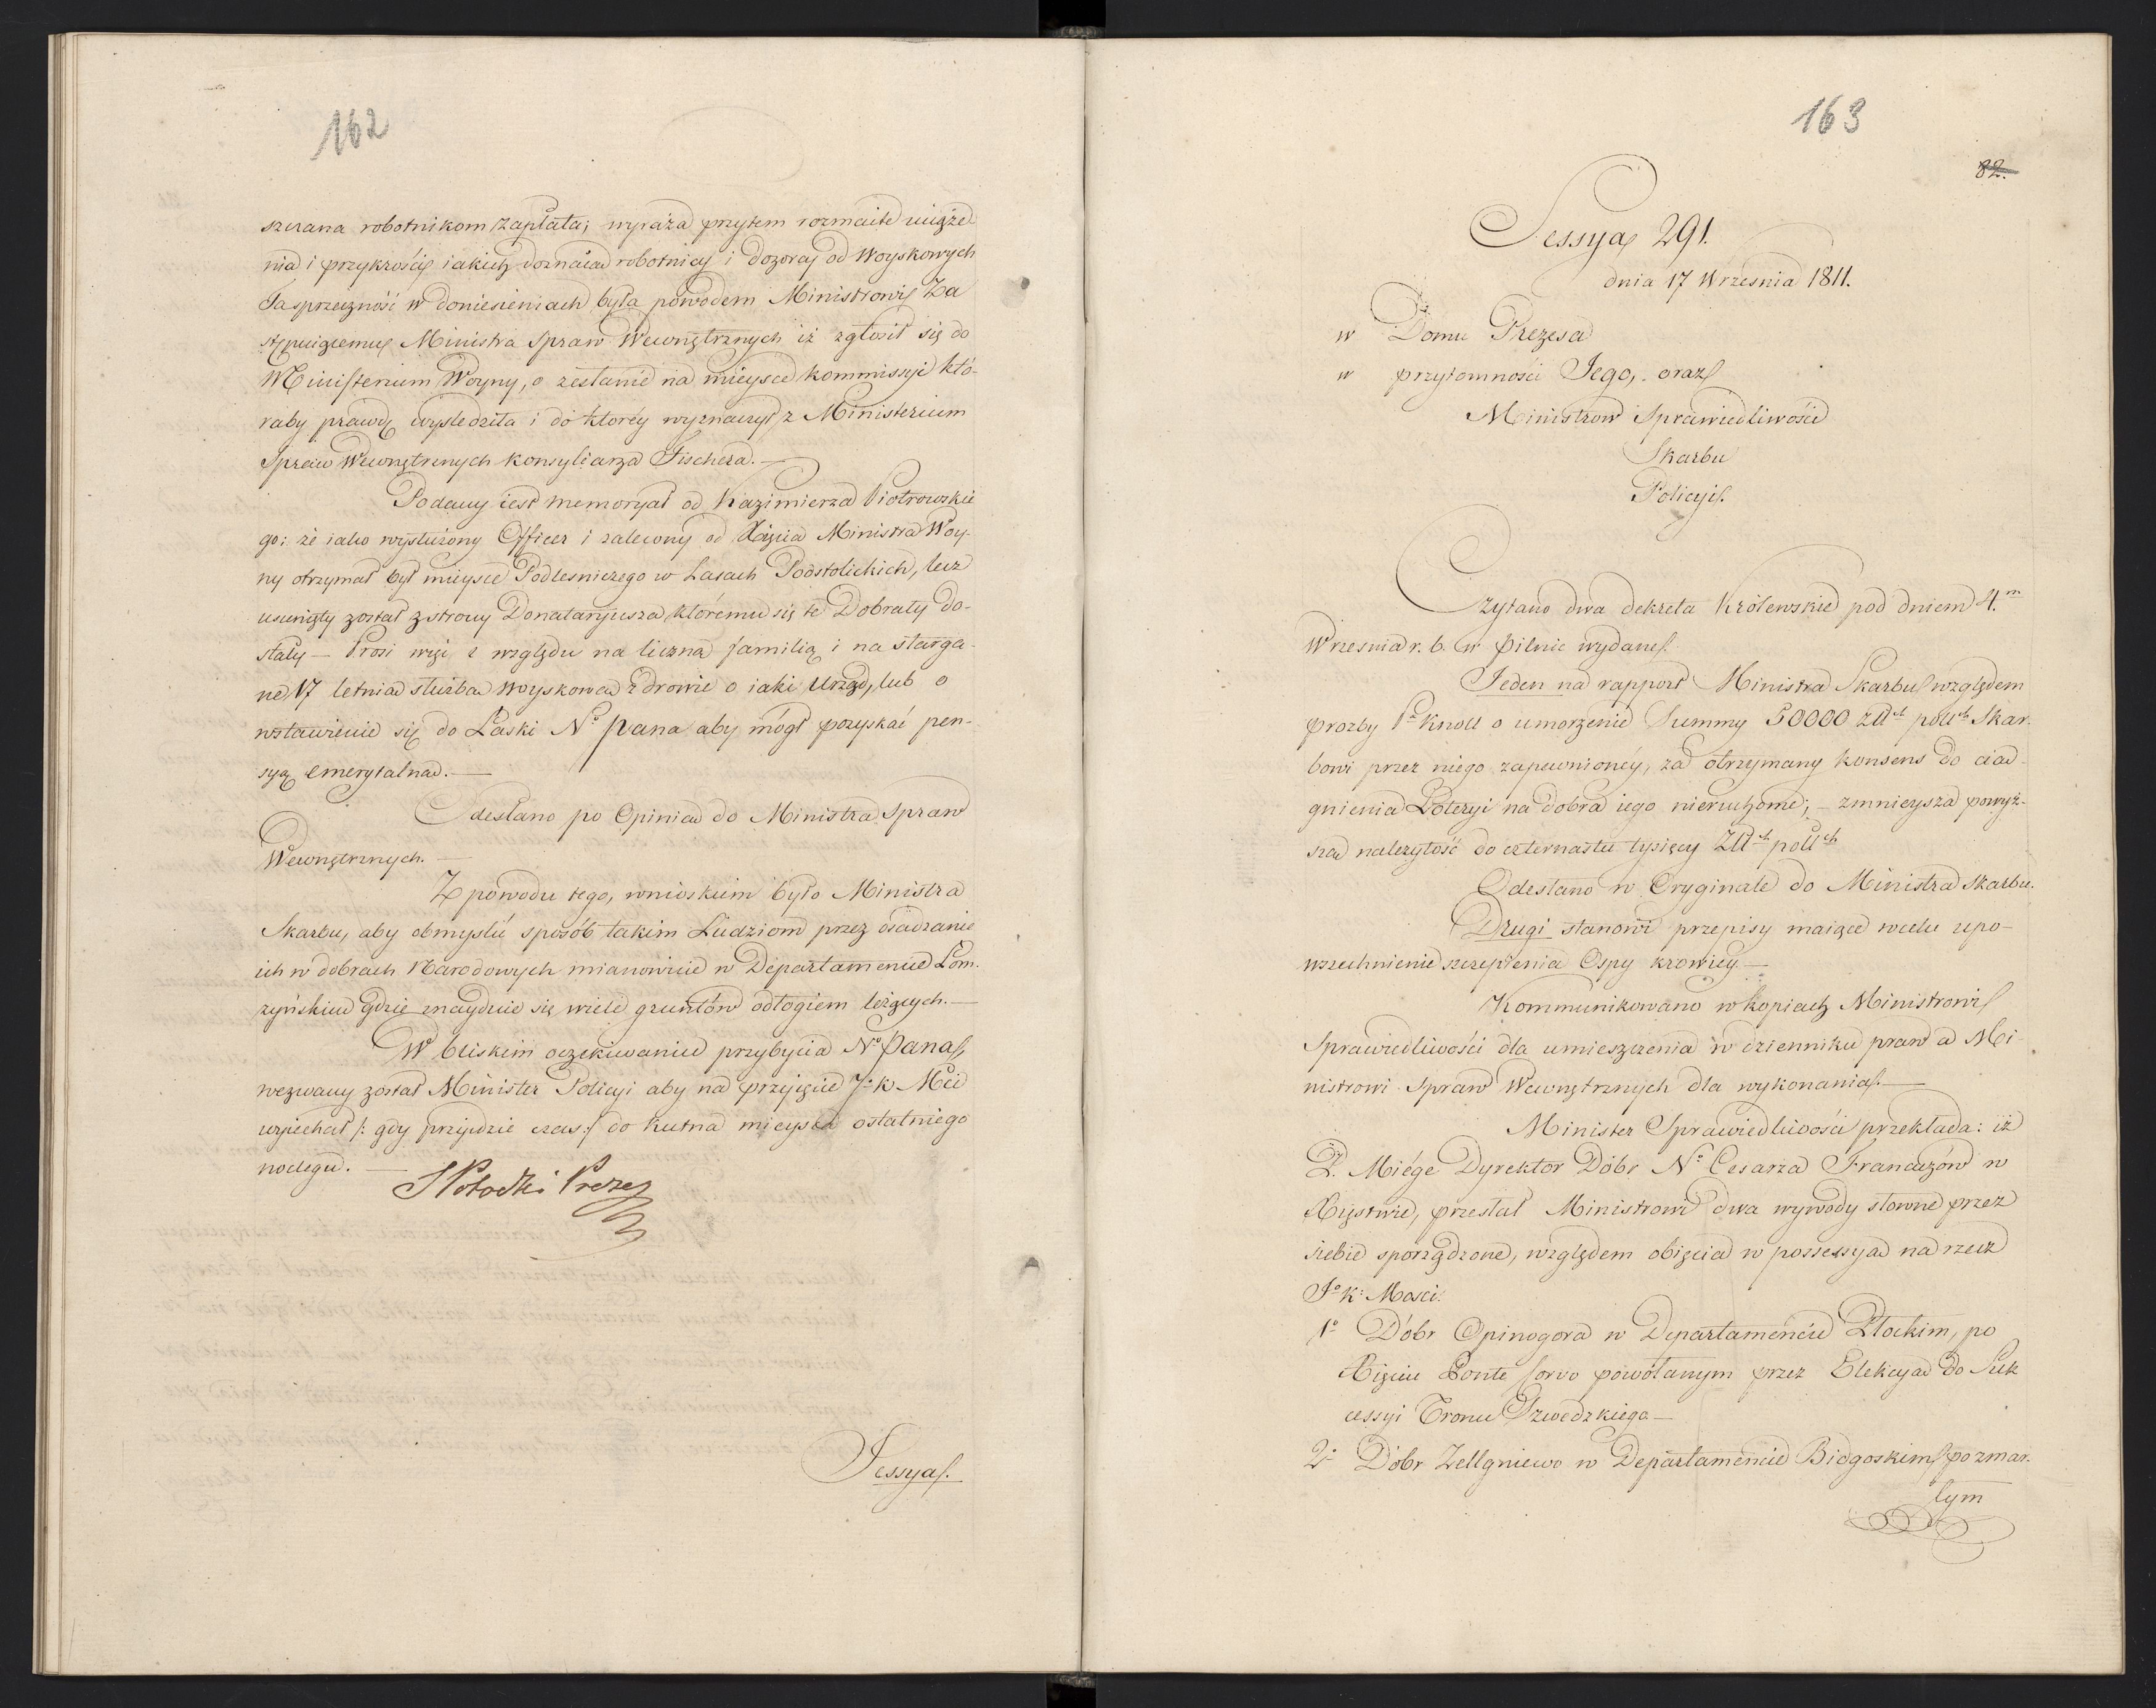 162
szczana robotnikom zapłata; wyraża przytem rozmaite uciąże
nia i przykrości iakich doznaią robotnicy i dozorcy od Woyskowych
Ta sprzeczność w doniesieniach była powodem Ministrowi Za
stępuiącemu Ministra Spraw Wewnętrznych iż zgłosił się do
Ministerium Woyny, o zesłanie na mieysce kommissyi któ-
raby prawdę wyśledziła i do ktorey wyznaczył z Ministerium
Spraw Wewnętrznych Konsyliarza Fischera.—
Podany iest memoryał od Kazimierza Piotrowskie
go: że iako wysłużony Officer i zalecony od Xięcia Ministra Woy-
ny otrzymał był mieysce Podlesniczego w Lasach Podstolickich, lecz
usunięty został z strony Donataryusza któremu się te Dobra ty do-
stały — Prosi więc z względu na liczną familią i na starga-
ne 17 letnią służbą woyskową zdrowie o iaki Urząd, lub o
wstawienie się do Łaski No Pana aby mógł pozyskać pen-
syą emerytalną.—
Odesłano po Opinią do Ministra Spraw
Wewnętrznych.—
Z powodu tego, wnioskiem było Ministra
Skarbu, aby obmyślić sposób takim Ludziom przez osadzanie
ich w dobrach Narodowych mianowicie w Departamencie Łom-
zyńskim gdzie znayduie się wiele gruntów odłogiem leżących.—
W bliskim oczekiwaniu przybycia No Pana,
wezwany został Minister Policyi aby na przyięcie J: K Mci
wyiechał /: gdy przyidzie czas :/ do Kutna mieysca ostatniego
noclegu.—
S Potocki Prezes
Sessya.
163
82.
Sessya 291.
dnia 17 Wrzesnia 1811.
w Domu Prezesa
w przytomności Jego, oraz
Ministrow Sprawiedliwości
Skarbu
Policyi.
Czytano dwa dekreta Królewskie pod dniem 4.m
Wrzesnia r. b. w Pilnic wydane.
Jeden na rapport Ministra Skarbu względem
prozby Pa Knoll o umorzenie Summy 50000 złłch pollch Skar-
bowi przez niego zapewnioney, za otrzymany konsens do cią-
gnienia Loteryi na dobra iego nieruchome; — zmnieysza powyż-
szą należytość do czternastu tysięcy Złłch pollch
Odesłano w Oryginale do Ministra Skarbu.
Drugi stanowi przepisy maiące w celu upo-
wszechnienie szczepienia Ospy krowiey.—
Kommunikowano w kopiach Ministrowi
Sprawiedliwości dla umieszczenia w dzienniku praw a Mi-
nistrowi Spraw Wewnętrznych dla wykonania.—
Minister Sprawiedliwości przekłada: iż
P. Miége Dyrektor Dóbr No Cesarza Francuzów w
Xięstwie, przesłał Ministrowi dwa wywody słowne przez
siebie sporządzone, względem obięcia w possessyą na rzecz
Jo K: Mości.
1o Dóbr Opinogora w Departamencie Płockim, po
Xięciu Ponte Corvo powołanym przez Elekcyą do Suk
cessyi Tronu Szwedzkiego—
2o Dóbr Zellgniewo w Departamencie Bidgoskim po zmar-
łym